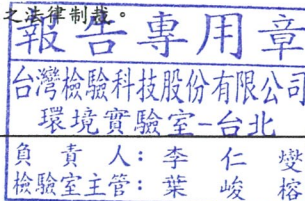 之法律制裁。
報告專用章
台灣檢驗科技股份有限公司
環境實驗室-台北
負責人：李仁燮
檢驗室主管：葉峻榕